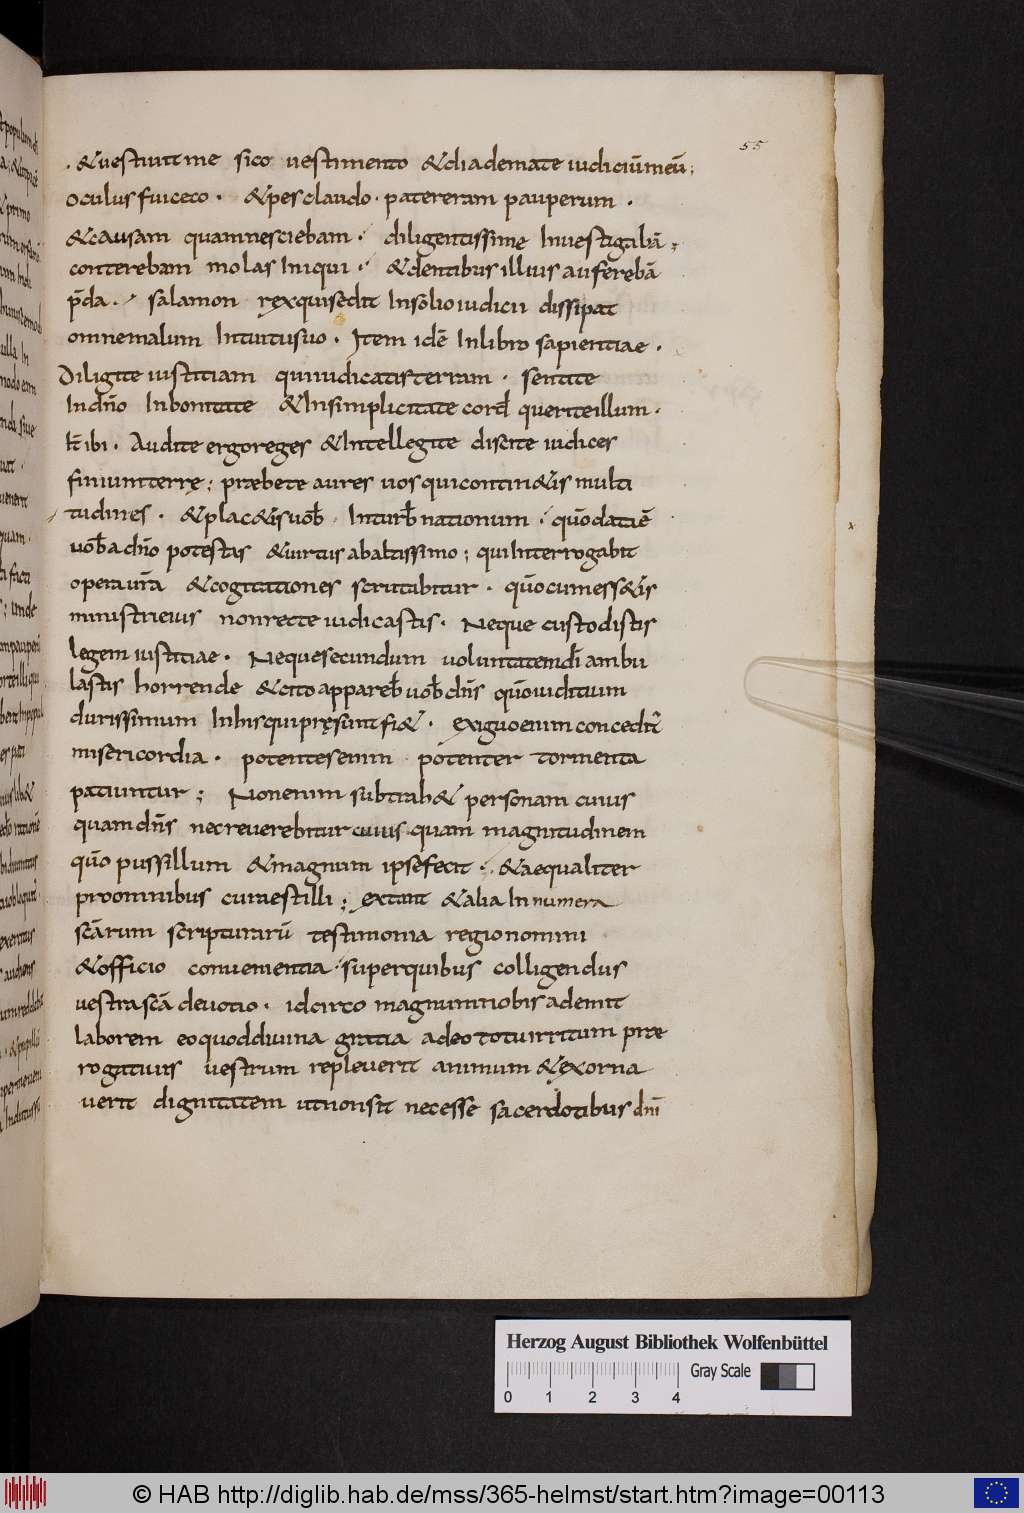 55
· &uestiuit me sico uestimento &diademate iudiciūmeū;
oculus fui ceco · &pes claudo · pater eram pauperum ·
&causam quamnesciebam · diligentissimę Inuestigabā;
conterebam molas Iniqui · &dentibus illius auferebā
p̄da · salamon rexquisedit Insolio iudicii dissipat
omnemalum Intuitusuo · Item idē Inlibro sapientiae ·
Diligite iustitiam quiiudicatisterram · sentite
Indn̄o Inbonitate &Insimplicitate cord̄ queriteillum ·
& ibi · Audite ergoreges &Intellegite discite iudices
finiumterrę; præbete aures uos quicontin&is multi
tudines · &plac&isuob̄ Inturb̄ nationum · qūodataē
uob̄ adn̄o potestas &uirtus abaltissimo; quiInterrogabit
operaur̄a &cogitationes scrutabitur · qūocumess&is
ministrieius nonrecte iudicastis · Neque custodistis
legem iustitiae · Nequesecundum uoluntatemdī ambu
lastis horrende &cito appareb̄ uob̄ dn̄s qūoiuditium
durissimum Inhisquipręsunt fi& · exiguoenim conceditr̄
misericordia · potentesenim potenter tormenta
patiuntur; Nonenim subtrah& personam cuius
quam dn̄s necreuerebitur cuius quam magnitudinem
qūo pussillum &magnum ipsefecit · &aequaliter
proomnibus curaestilli; extant &alia Innumera
scārum scripturarū testimonia regionomini
&officio conuenientia · superquibus colligendus
uestrascā deuotio · idcirco magnumnobis ademit
laborem eoquoddiuina gratia adeototuirritum præ
rogatiuis uestrum repleuerit animum &exorna
uerit dignitatem utnonsit necesse sacerdotibus dn̄i
Herzog August Bibliothek Wolfenbüttel
Gray Scale
0 1 2 3 4
© HAB http://diglib.hab.de/mss/365-helmst/start.htm?image=00113